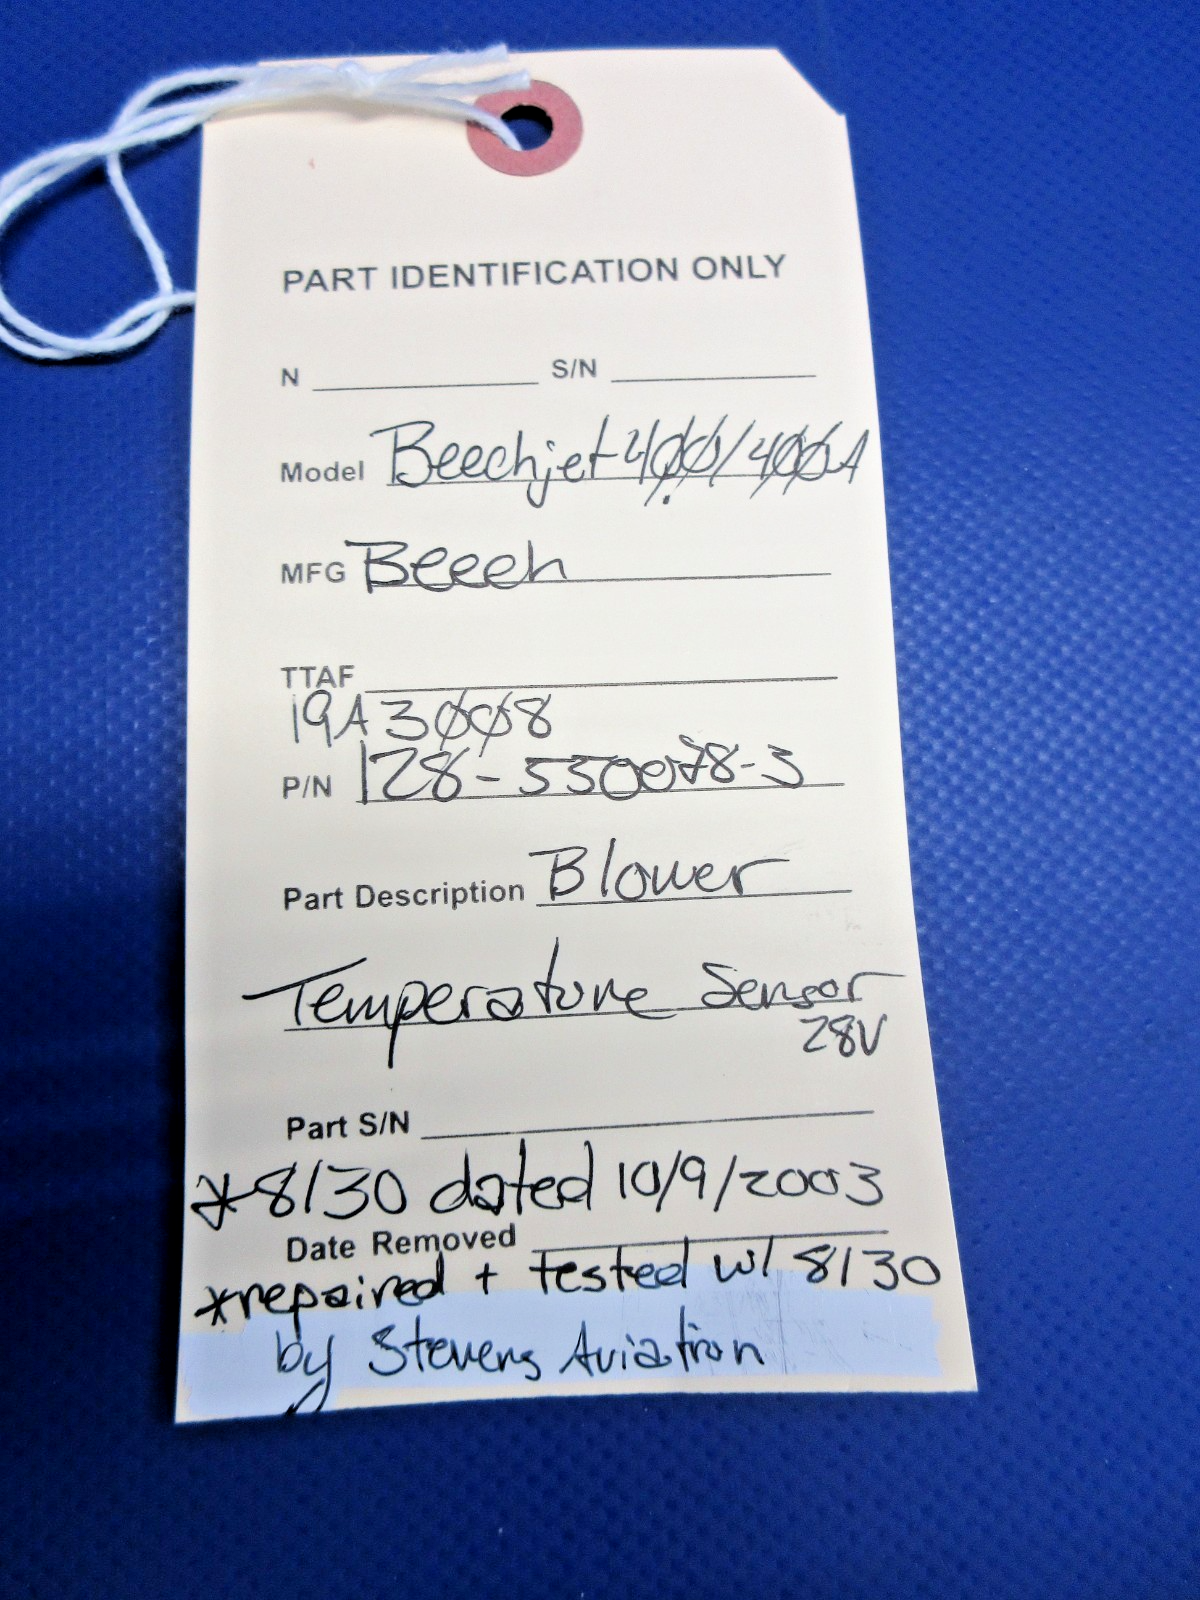 PART IDENTIFICATION ONLY
N S/N
Model Beechjet 400/400A
MFG Beech
TTAF
19A3008
P/N 128-550078-3
Part Description Blower
Temperature Sensor
28V
Part S/N
*8130 dated 10/9/2003
Date Removed
*repaired + tested w/ 8130
by Stevens Aviation